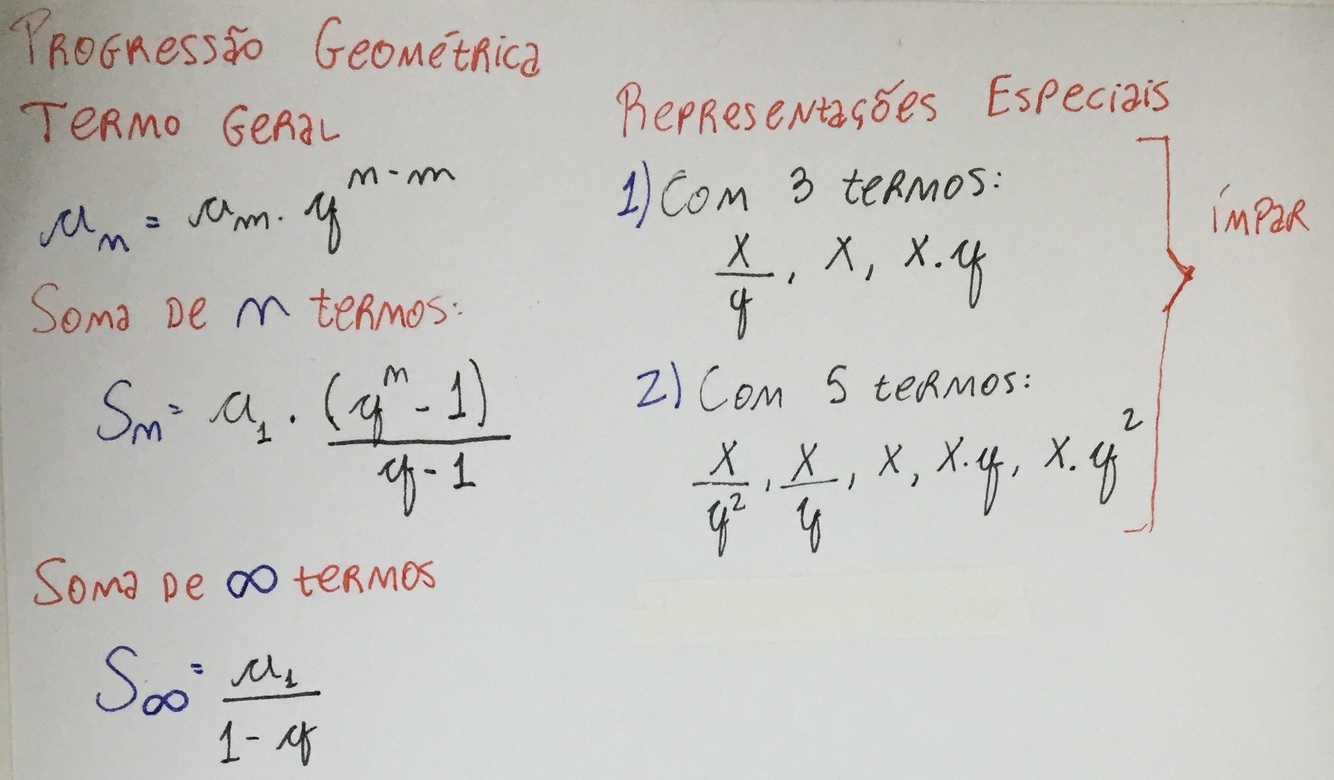 Progressão Geométrica
Termo Geral
aₙ = aₘ · qⁿ⁻ᵐ
Soma de n termos:
Sₙ = a₁ · (qⁿ - 1) / q - 1
Soma de ∞ termos
S∞ = a₁ / 1 - q
Representações Especiais
1) Com 3 termos:
x/q, x, x.q
2) Com 5 termos:
x/q², x/q, x, x.q, x.q²
ímpar